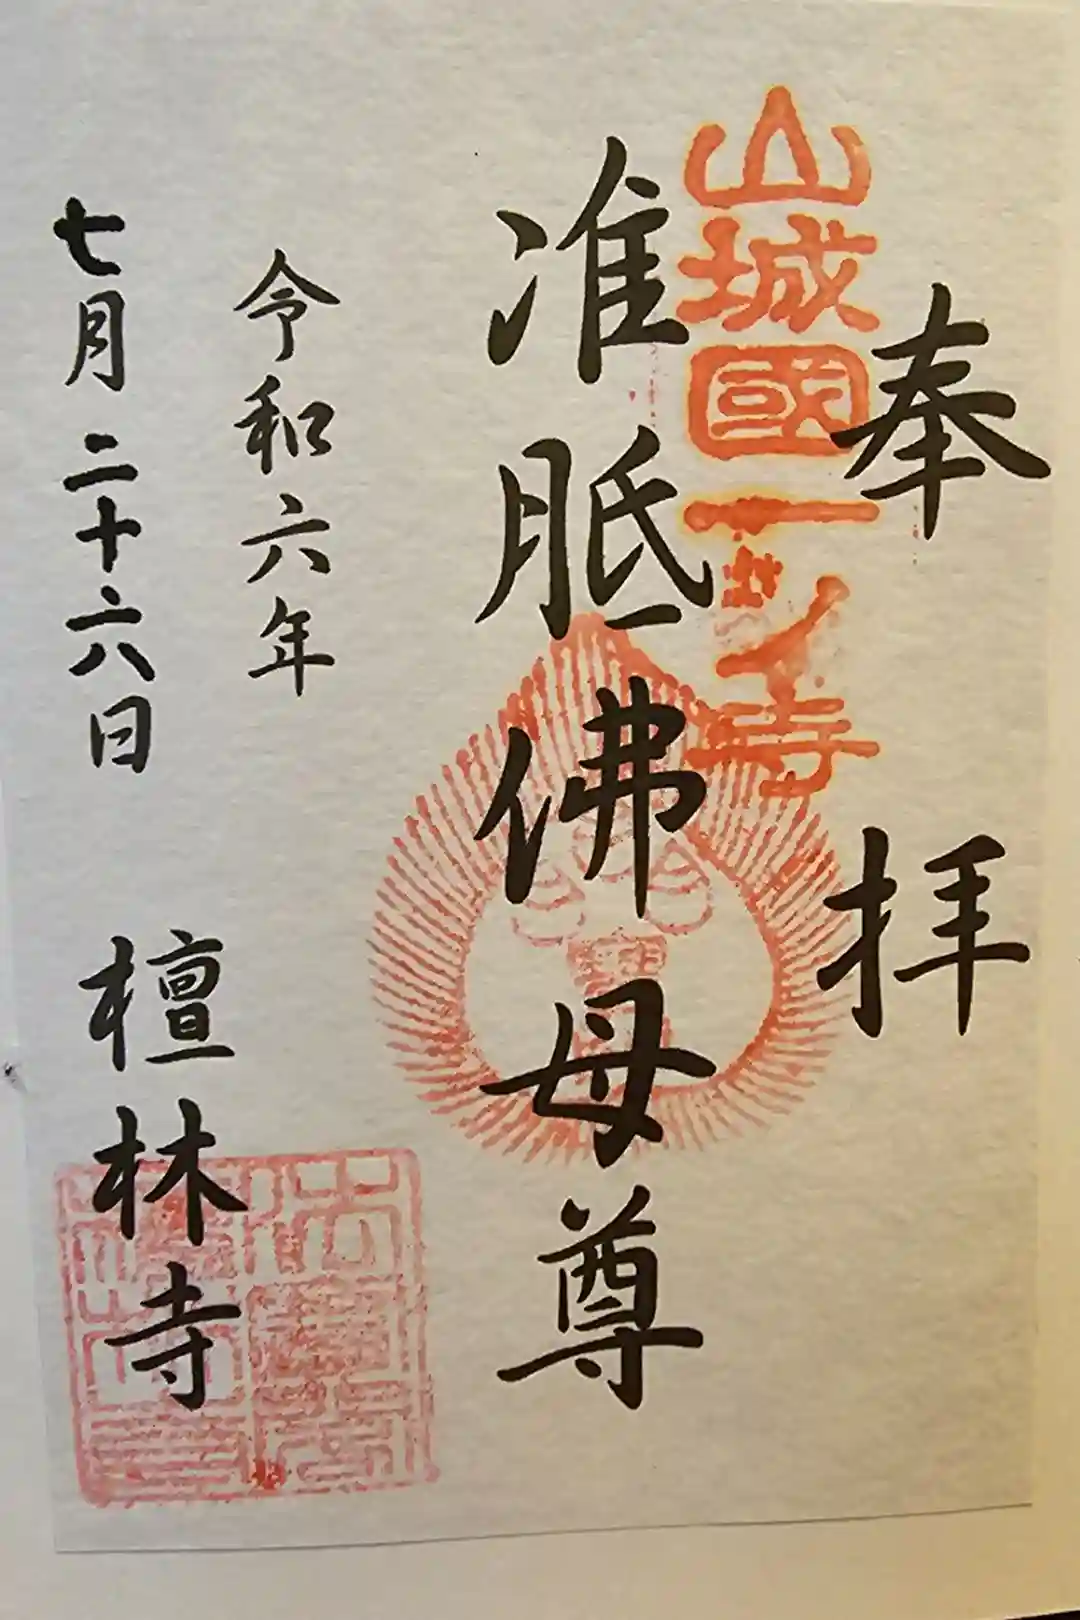 奉拝
山城國一ノ寺
准胝佛母尊
令和六年
七月二十六日
檀林寺